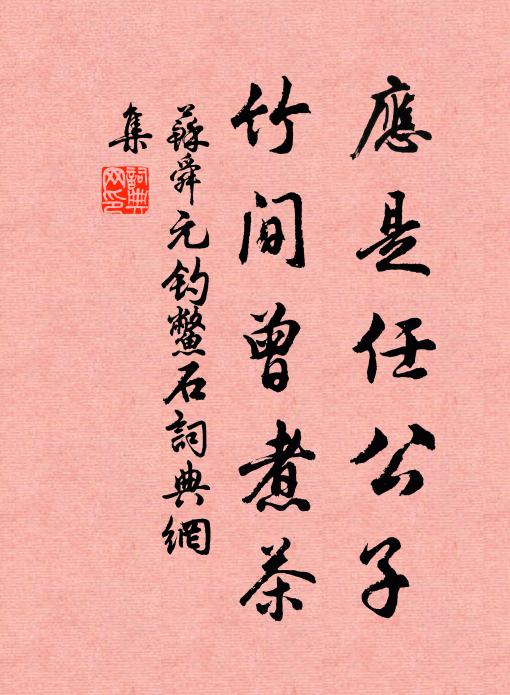 應是任公子
竹间曾煮茶
蘇舜元釣鱉石詞典網
集
詞典
网印